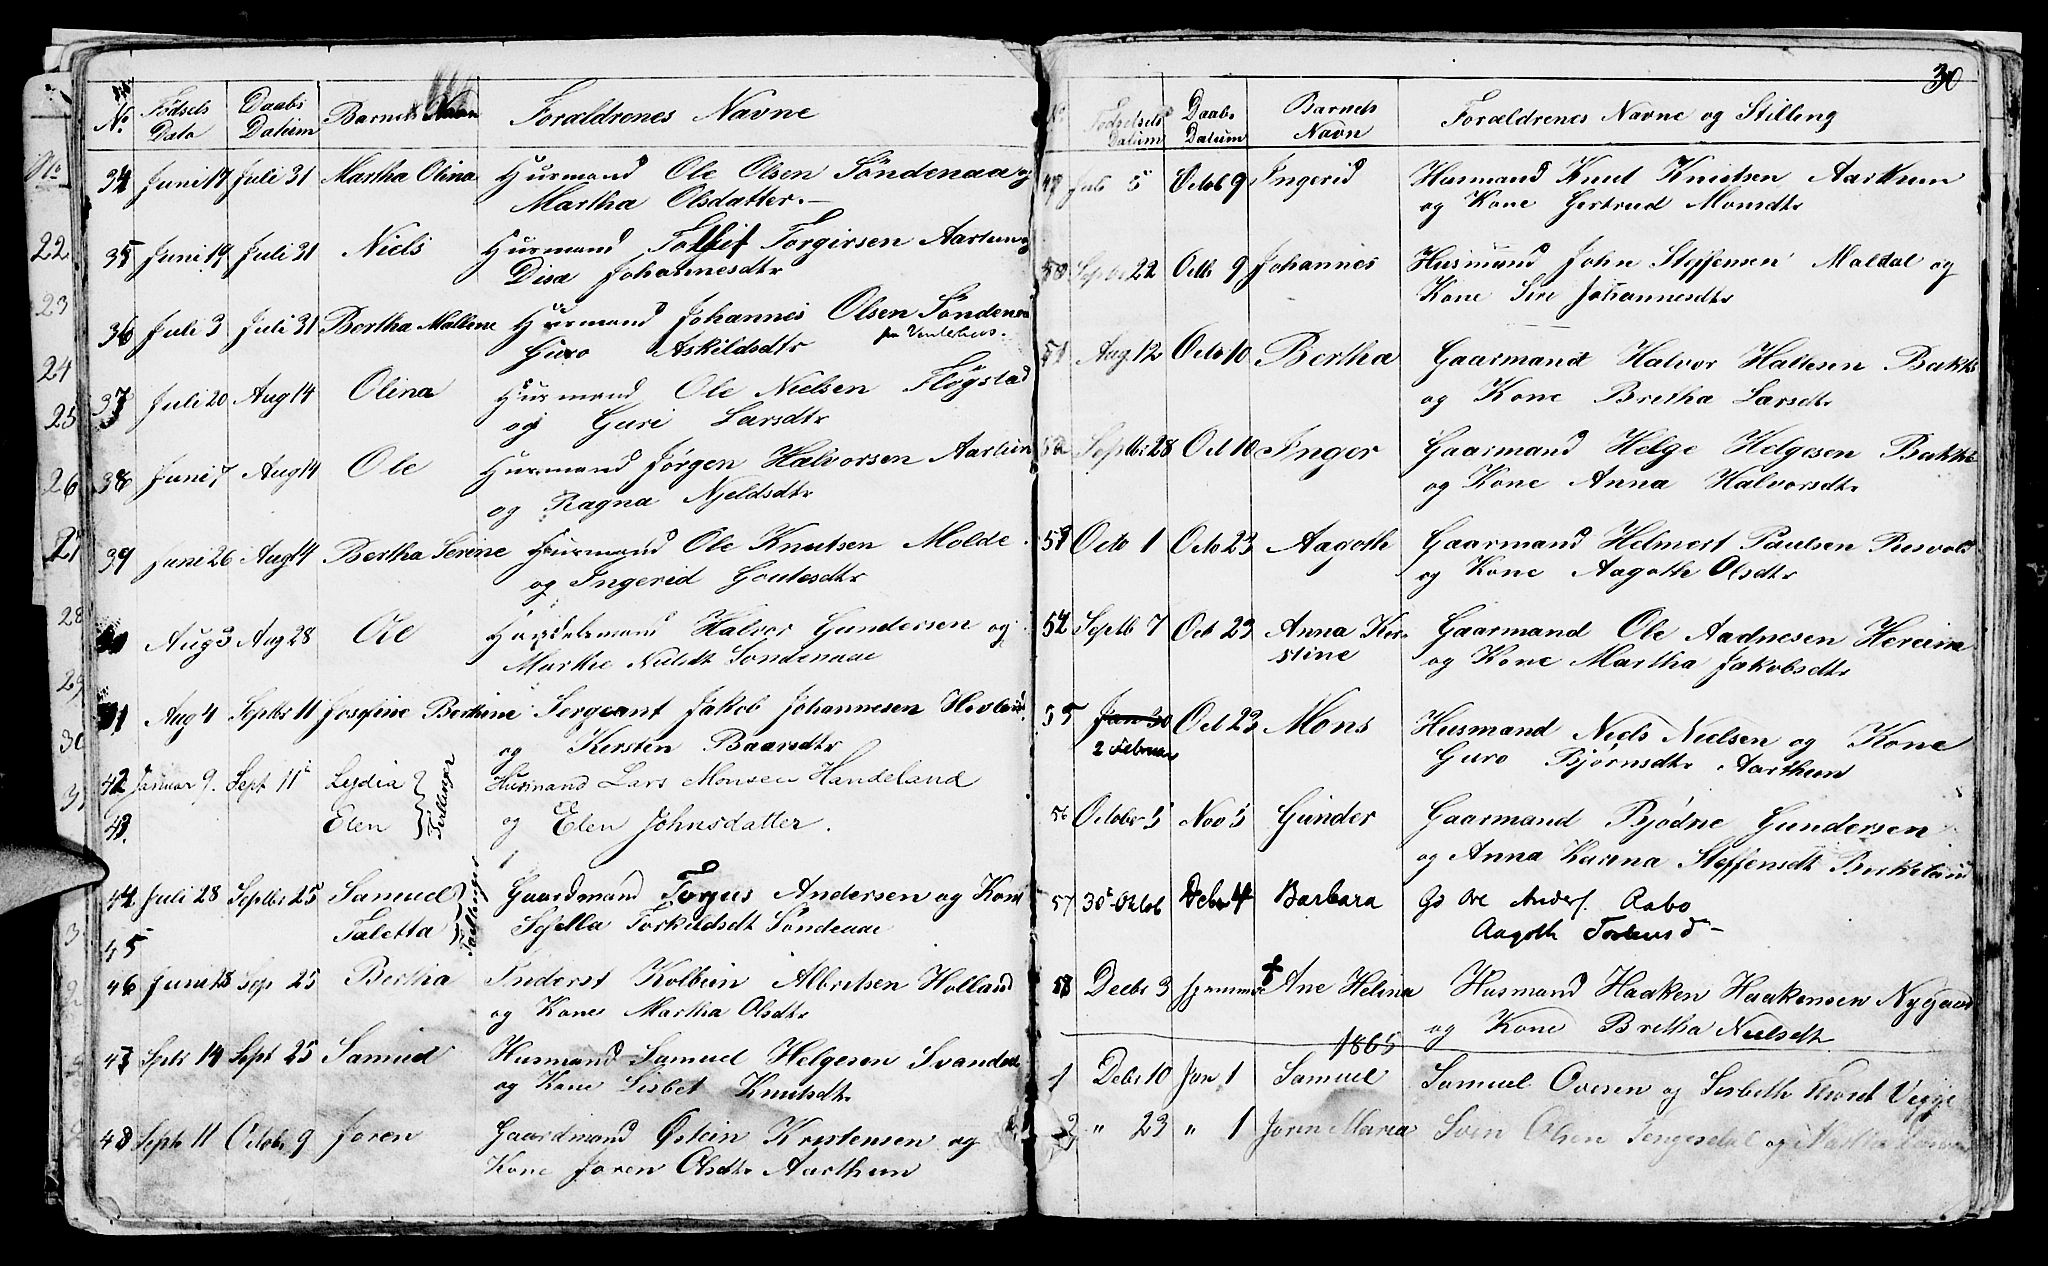 No. Fødsels Dato Daabs Datum Barnets Navn Forældrenes Navne
34 Juni 17 Juli 31 Martha Olina Husmand Ole Olsen Söndenaa og
Martha Olsdatter.
35 Juni 19 Juli 31 Niels Husmand Tollef Torgirsen Aarthun og
Disa Johannesdtr
36 Juli 3 Juli 31 Bertha Mallene Husmand Johannes Olsen Söndenaa
Guro Askildsdtr
37 Juli 20 Aug 14 Olina Husmand Ole Nielsen Fløgstad
og Guri Larsdtr
38 Juni 7 Aug 14 Ole Husmand Jørgen Halvorsen Aarthun
og Ragna Njeldsdtr
39 Juni 26 Aug 14 Bertha Serine Husmand Ole Knutsen Molde
og Ingerid Goutesdtr
40 Aug 3 Aug 28 Ole Handelsmand Halvor Gundersen og
Marthe Nielsdt Søndenaae
41 Aug 4 Septbr 11 Josefine Berthine Sergeant Jakob Johannesen
og Kirsten Baarsdtr
42 Januar 9. Sept 11 Lydia Tvillinger Husmand Lars Monsen Handeland
43. Elen og Elen Johnsdatter.
44 Juli 28 Septbr 25 Samuel Tvillinger Gaardmand Torgus Andersen og Kone
45 Taletta Sjella Torkildsdt Söndenaae
46 Juni 28 Sep 25 Bertha Inderst Kolbein Albretsen Holland
og Kone Martha Olsdtr
47 Septr 14 Sept 25 Samuel Husmand Samuel Helgesen Svandal
og Kone Lisbet Knutsdtr
48 Septr 11 Octobr 9 Joren Gaardmand Østein Kristensen og
Kone Joren Olsdtr Aarthun
30
Fødselsdatum Daabs Datum Barnets Navn Forældrenes Navne og Stilling
49 Juli 5 Octob 9 Ingerid Husmand Knut Knutsen Aarthun
og Kone Gertrud Monsdtr
50 Septbr 22 Octb 9 Johannes Husmand John Steffensen Maldal og
Kone Siri Johannesdtr
51 Aug 12 Octo 10 Bertha Gaarmand Halvor Halvesen Bakke
og Kone Bretha Larsdtr
52 Septbr 28 Oct 10 Inger Gaarmand Helge Helgesen Bakke
og Kone Anna Halvorsdtr
53 Octo 1 Octo 23 Aagothe Gaarmand Helmert Paulsen Risvold
og Kone Aagothe Olsdtr
54 Septb 7 Oct 23 Anna Kirstine Gaarmand Ole Aadnesen Hereim
og Kone Martha Jakobsdtr
55 Jan 30 Oct 23 Mons Husmand Niels Nielsen og Kone
2 Februar Guro Bjørnsdtr Aarthun
56 October 5 Nov 5 Gunder Gaarmand Bjødne Gundersen
og Anna Karina Steffensdt Birkeland
57 30te Oktob Debr 4 Barbara Gd Ole Anders. Aabo
Aagoth
58 Decbr 3 hjemme † Ane Helina Husmand Haaken Haakensen Nygaard
og Kone Bretha Nielsdtr
1865
1 Debr 10 Jan 1 Samuel Samuel Ovesen og Lisbeth
2 " 23 " 1 Jorin Maria Sven Olsen Tengesdal og
No.
22
23
24
25
26
27
28
29
30
31